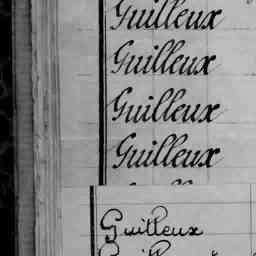 Guilleux
Guilleux
Guilleux
Guilleux
Guilleux